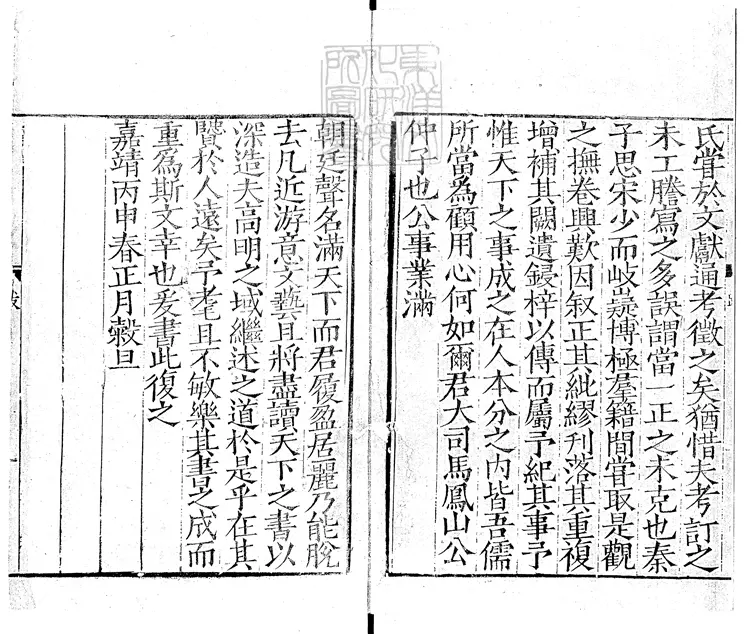 氏甞於文獻通考徵之矣猶惜夫考訂之
未工謄寫之多誤謂當一正之未克也秦
子思宋少而岐嶷博極羣籍閒甞取是觀
之撫卷興歎因叙正其紕繆刋落其重複
增補其闕遺鋟梓以傳而屬予紀其事予
惟天下之事成之在人本分之内皆吾儒
所當為顧用心何如爾君大司馬鳳山公
仲子也公事業滿
朝廷聲名滿天下而君履盈居麗乃能脫
去凡近游意文藝且將盡讀天下之書以
深造夫高明之域繼述之道於是乎在其
賢於人遠矣予耄且不敏樂其書之成而
重為斯文幸也爰書此復之
嘉靖丙申春正月榖旦